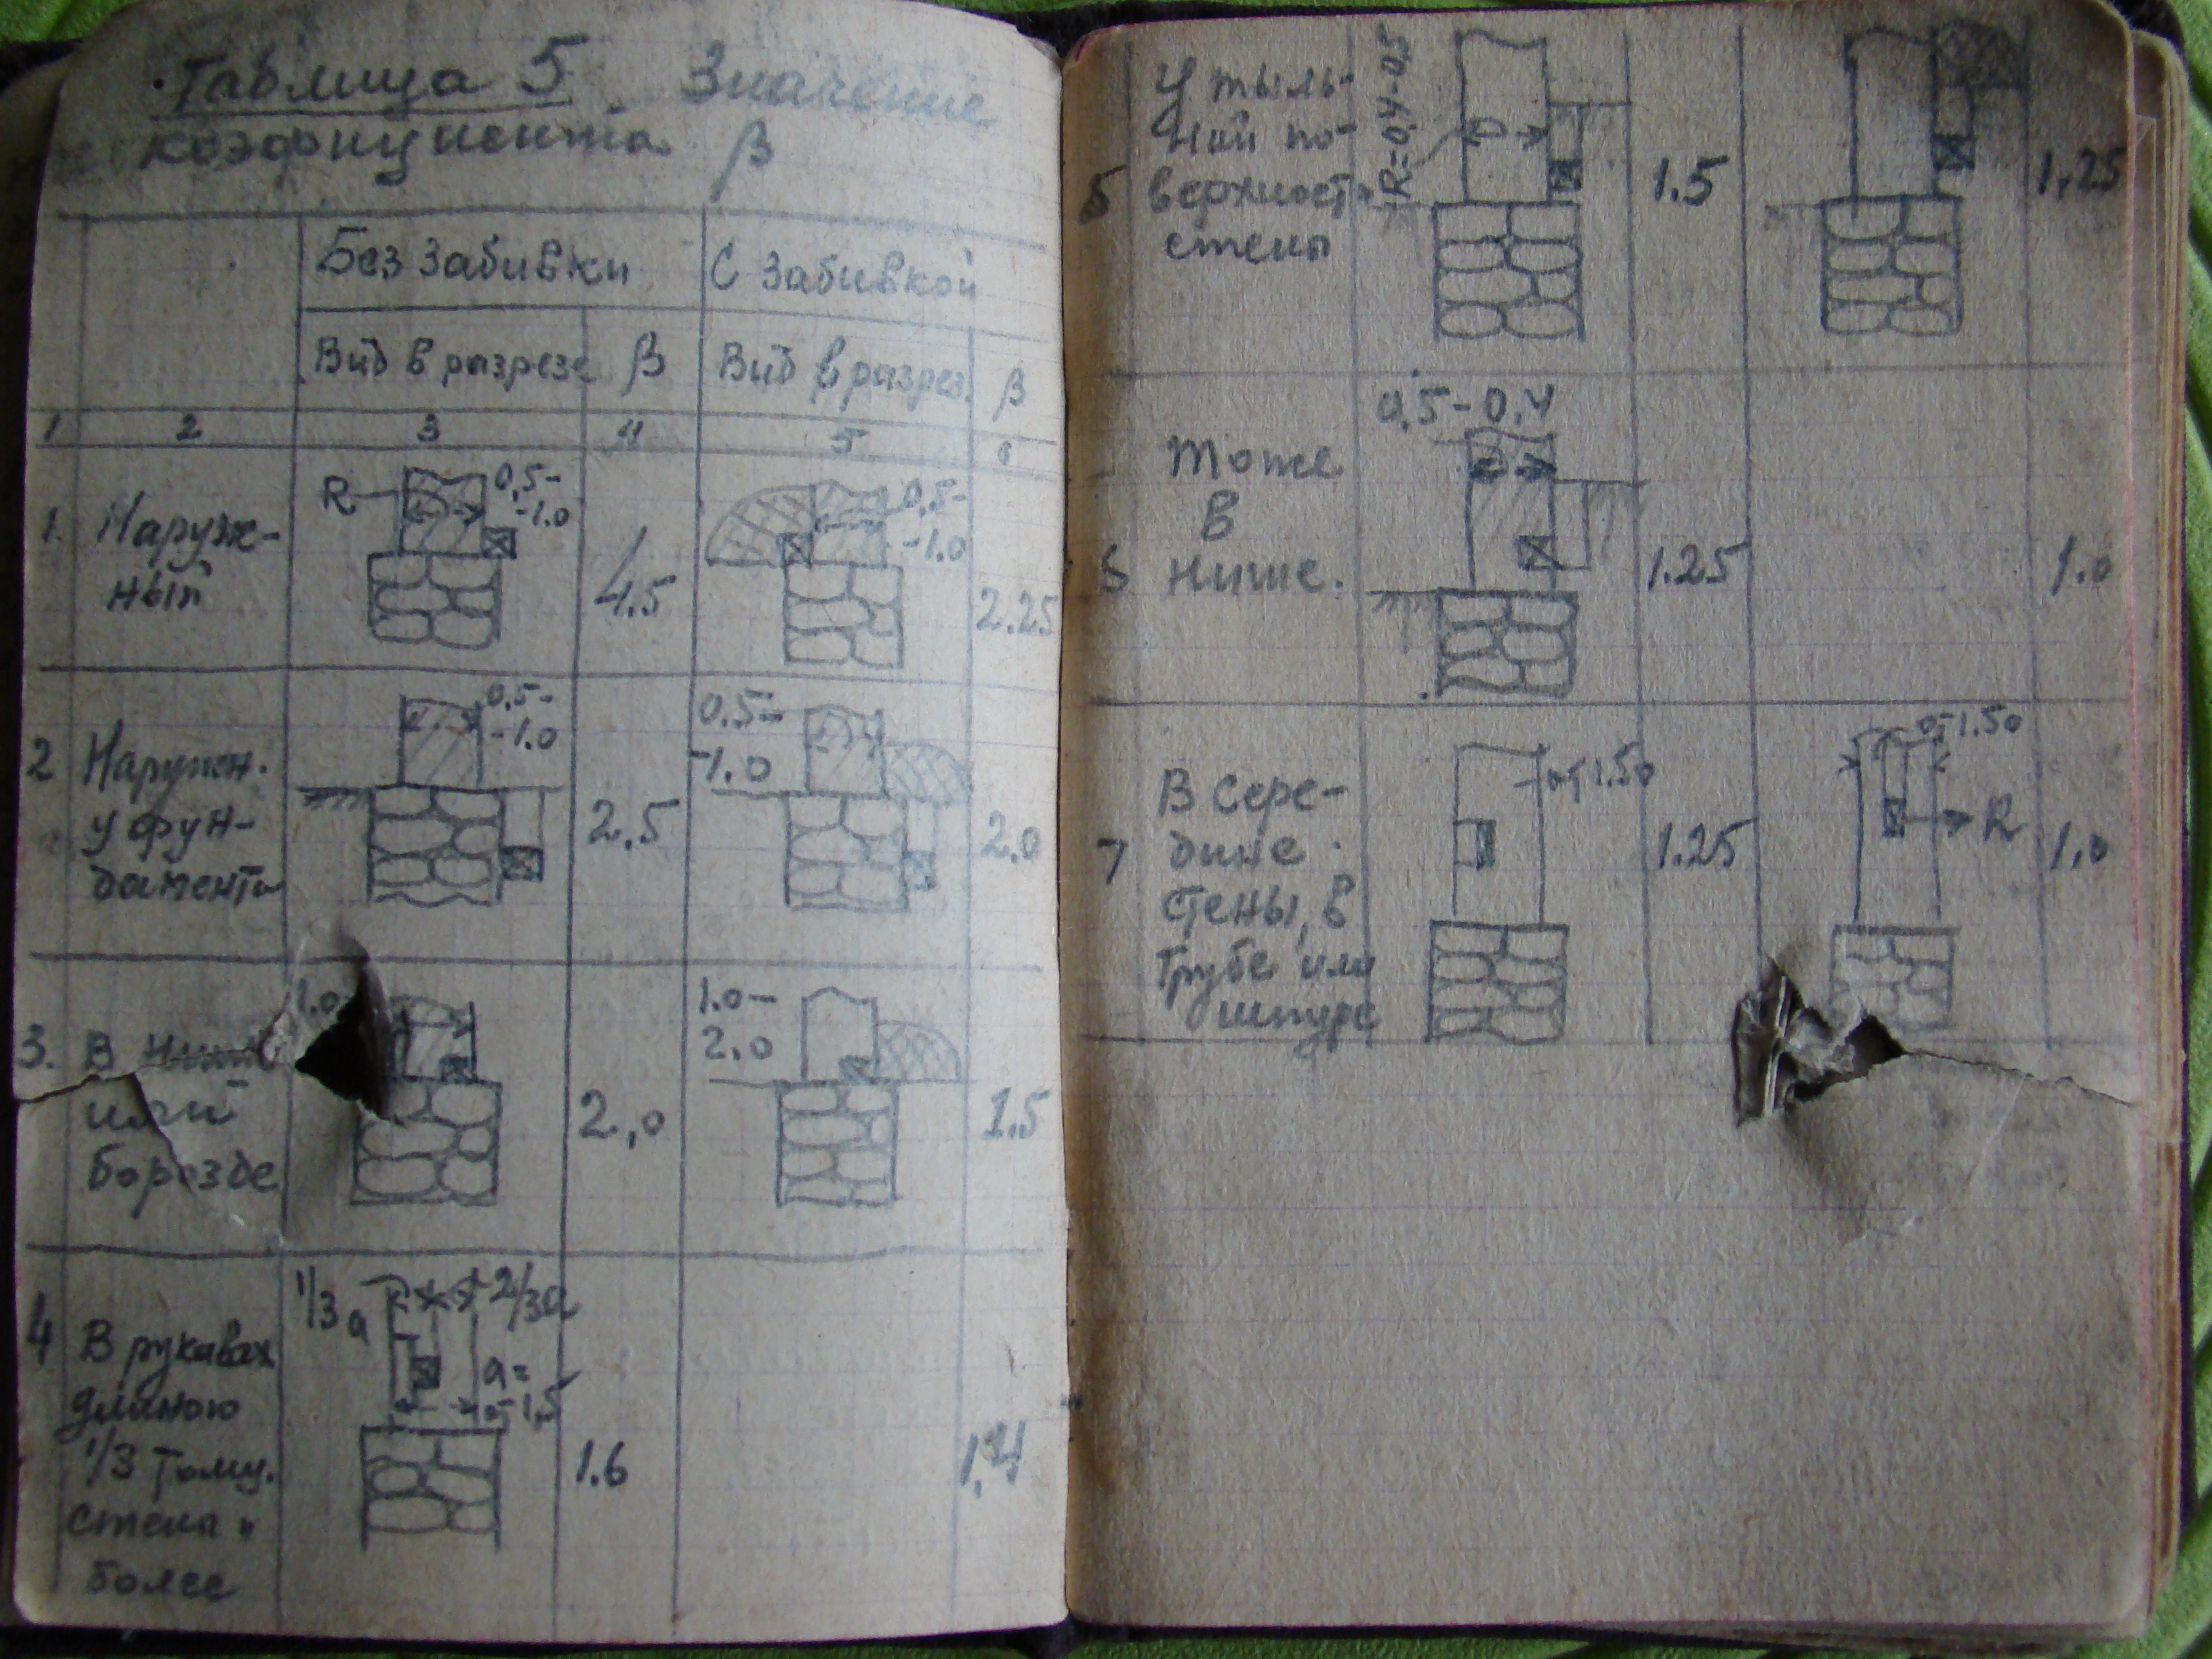 Таблица 5. Значение
коэфициента β
Без забивки
С забивкой
Вид в разрезе
β
Вид в разрез.
β
1 2 3 4 5 6
1. Наруж-
ный
R
0,5-
-1.0
4.5
0,5-
-1.0
2.25
2 Наружн.
у фун-
дамента
0.5-
-1.0
2.5
0.5-
-1.0
2.0
3. В
или
борозде
1.0-
2,0
1.0-
2.0
1.5
4 В рукавах
длиною
1/3 толщ.
стены и
более
1/3 а
2/3а
а=
от 1,5
1.6
1,4
5 У тыль-
ной по-
верхности
стены
R=0,4-0,5
1.5
1,25
6 Тоже
в
нише.
0,5-0,4
1.25
1.0
7 В сере-
дине
стены, в
трубе или
шпуре
от 1.50
1.25
от 1.50
R
1,0